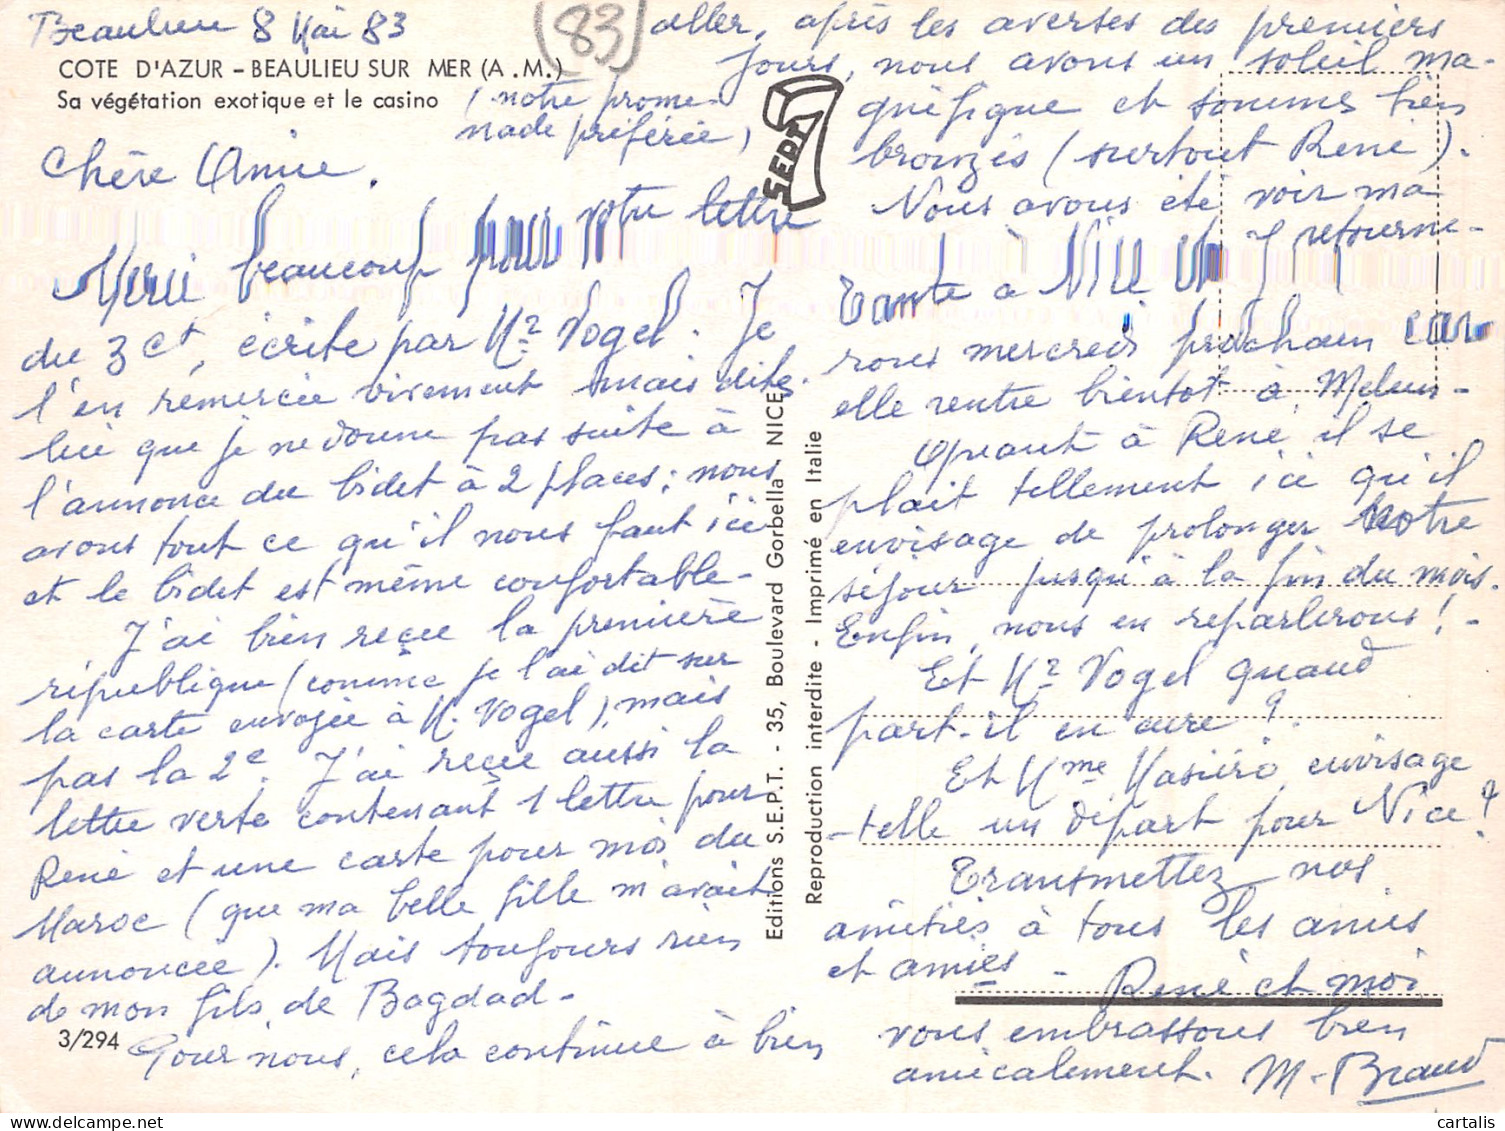 Beaulieu 8 Mai 83
(83)
COTE D'AZUR – BEAULIEU SUR MER (A.M.)
Sa végétation exotique et le casino
(notre prome-
nade préférée)
Chère Amie,
Merci beaucoup pour votre lettre
du 3 ct, écrite par Mr Vogel. Je
l'en remercie vivement mais dites-
lui que je ne donne pas suite à
l'annonce du bidet à 2 places ; nous
avons tout ce qu'il nous faut ici
et le bidet est même confortable -
J'ai bien reçue la première
république (comme je l'ai dit sur
la carte envoyée à M. Vogel), mais
pas la 2e. J'ai reçue aussi la
lettre verte contenant 1 lettre pour
René et une carte pour moi du
Maroc (que ma belle fille m'avait
annoncée). Mais toujours rien
de mon fils de Bagdad -
Pour nous, cela continue à bien
3/294
SEPT
Editions S.E.P.T. - 35, Boulevard Gorbella NICE
Reproduction interdite - Imprimé en Italie
aller, après les averses des premiers
jours, nous avons un soleil ma-
gnifique et sommes bien
bronzés (surtout René).
Nous avons été voir ma
Tante à Nice et y retourne-
rons mercredi prochain car
elle rentre bientôt à Melun -
Quant à René il se
plait tellement ici qu'il
envisage de prolonger notre
séjour jusqu'à la fin du mois.
Enfin, nous en reparlerons ! -
Et Mr Vogel quand
part-il en cure ?
Et Mme Masiéro envisage
-telle un départ pour Nice ?
Transmettez nos
amitiés à tous les amis
et amies -
René et moi
vous embrassons bien
amicalement. M. Braud
cartalis
delcampe.net